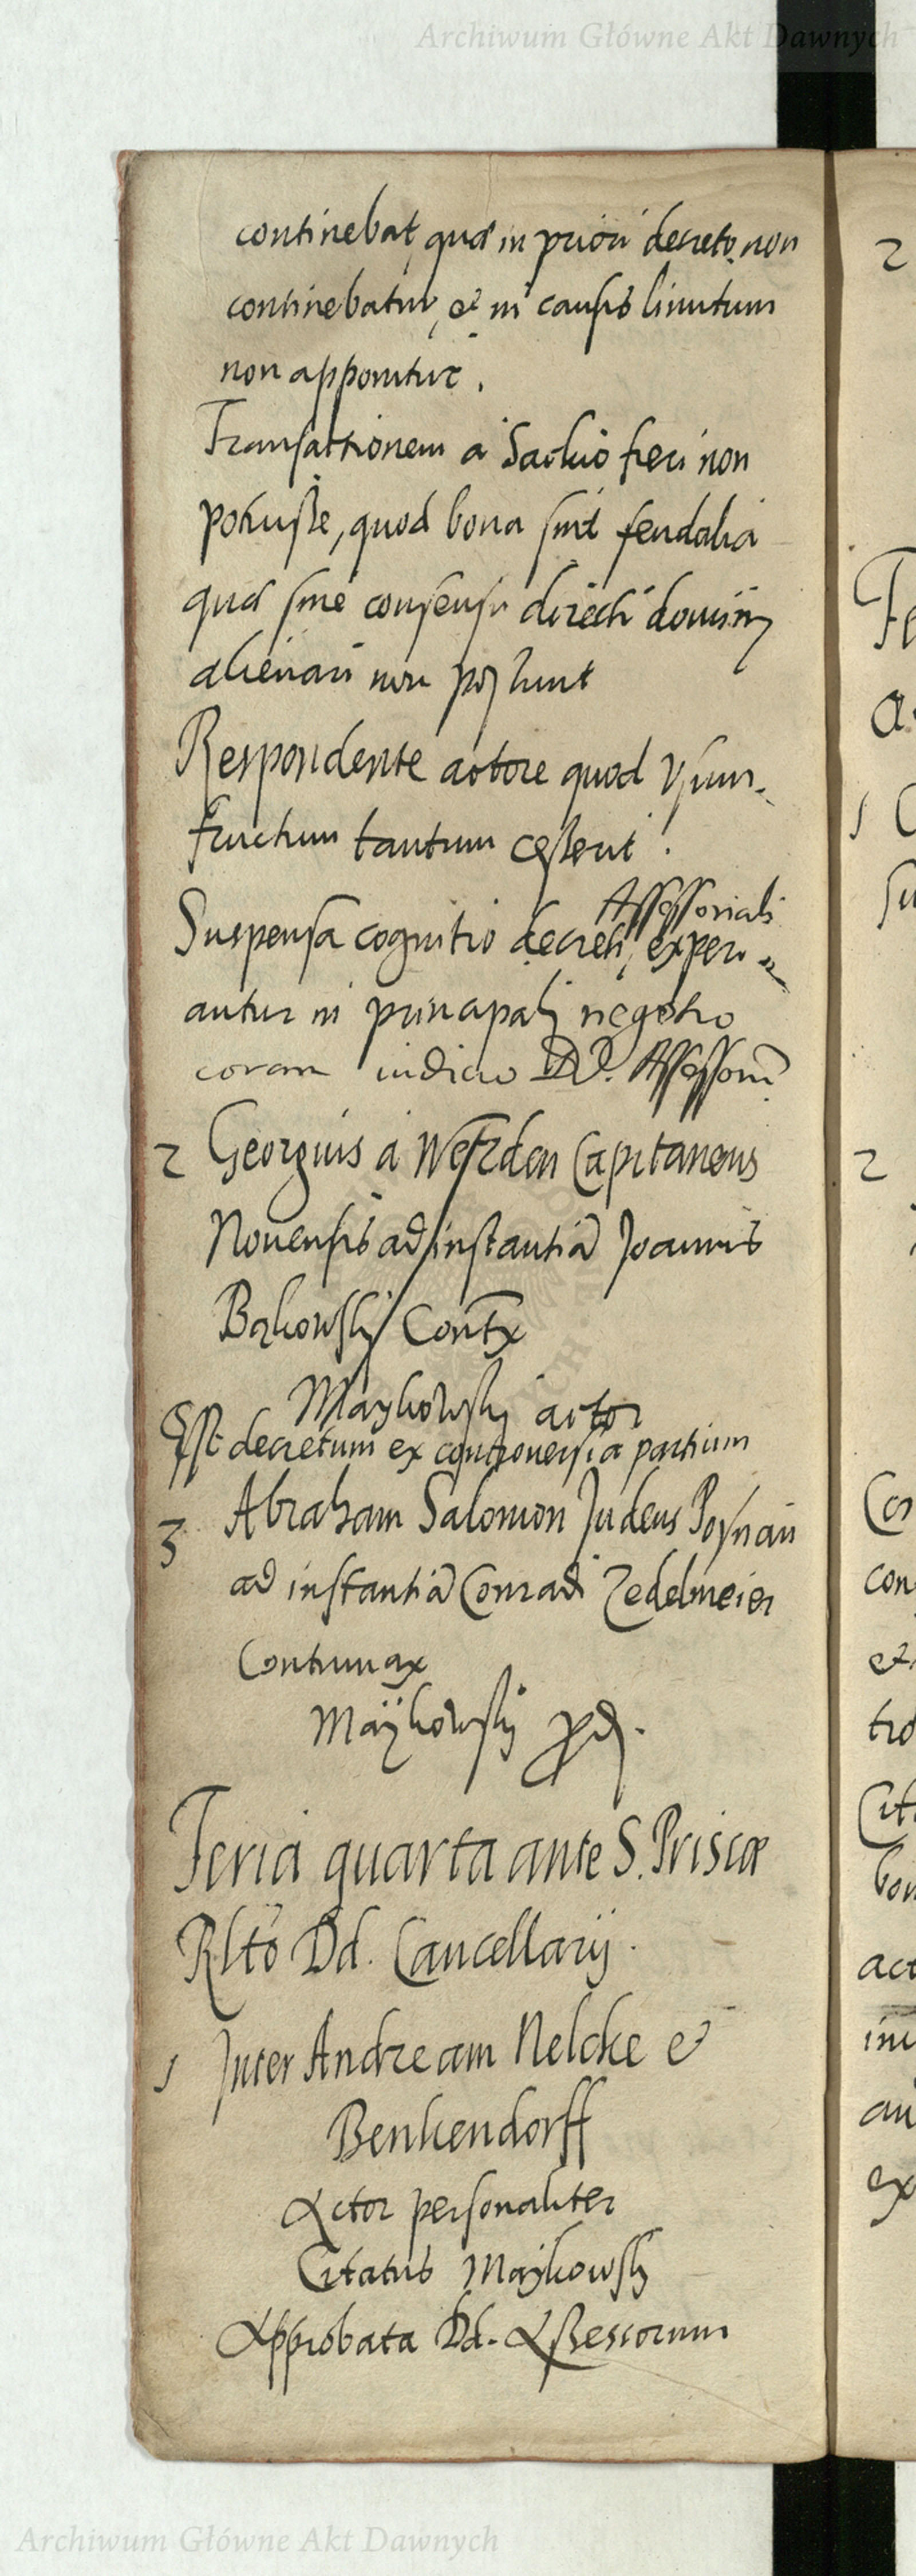 Archiwum Główne Akt Dawnych
continebat, quæ in priori decreto non
continebatur, et in causis limitum
non apponitur.
Transactionem a fieri non
potuisse, quod bona sint feudalia
quæ sine consensu directi dominij
alienari non possunt
Respondente actore quod Vsum-
fructum tantum cesserit.
Assessorialis
Suspensa cognitio decreti, experi-
antur in principali negotio
coram iudicio DD. Assessorũ
2 Georgius a Werden Capitaneus
Novensis ad instantiã Joannis
Bąkowskj Contx
Maykowskj actor
Est decretum ex controversia partium
3 Abraham Salomon Judeus Posnan
ad instantiã Conradi Zedelmeier
Contumax
Maÿkowskj
Feria quarta ante S. Priscæ
Rlto Dd. Cancellarij.
1 Inter Andream Nelcke et
Benkendorff
Actor personaliter
Citatus Maÿkowskj
Approbata Dd. Assessorum
2
Fe
1
2
con
act
ex
Archiwum Główne Akt Dawnych